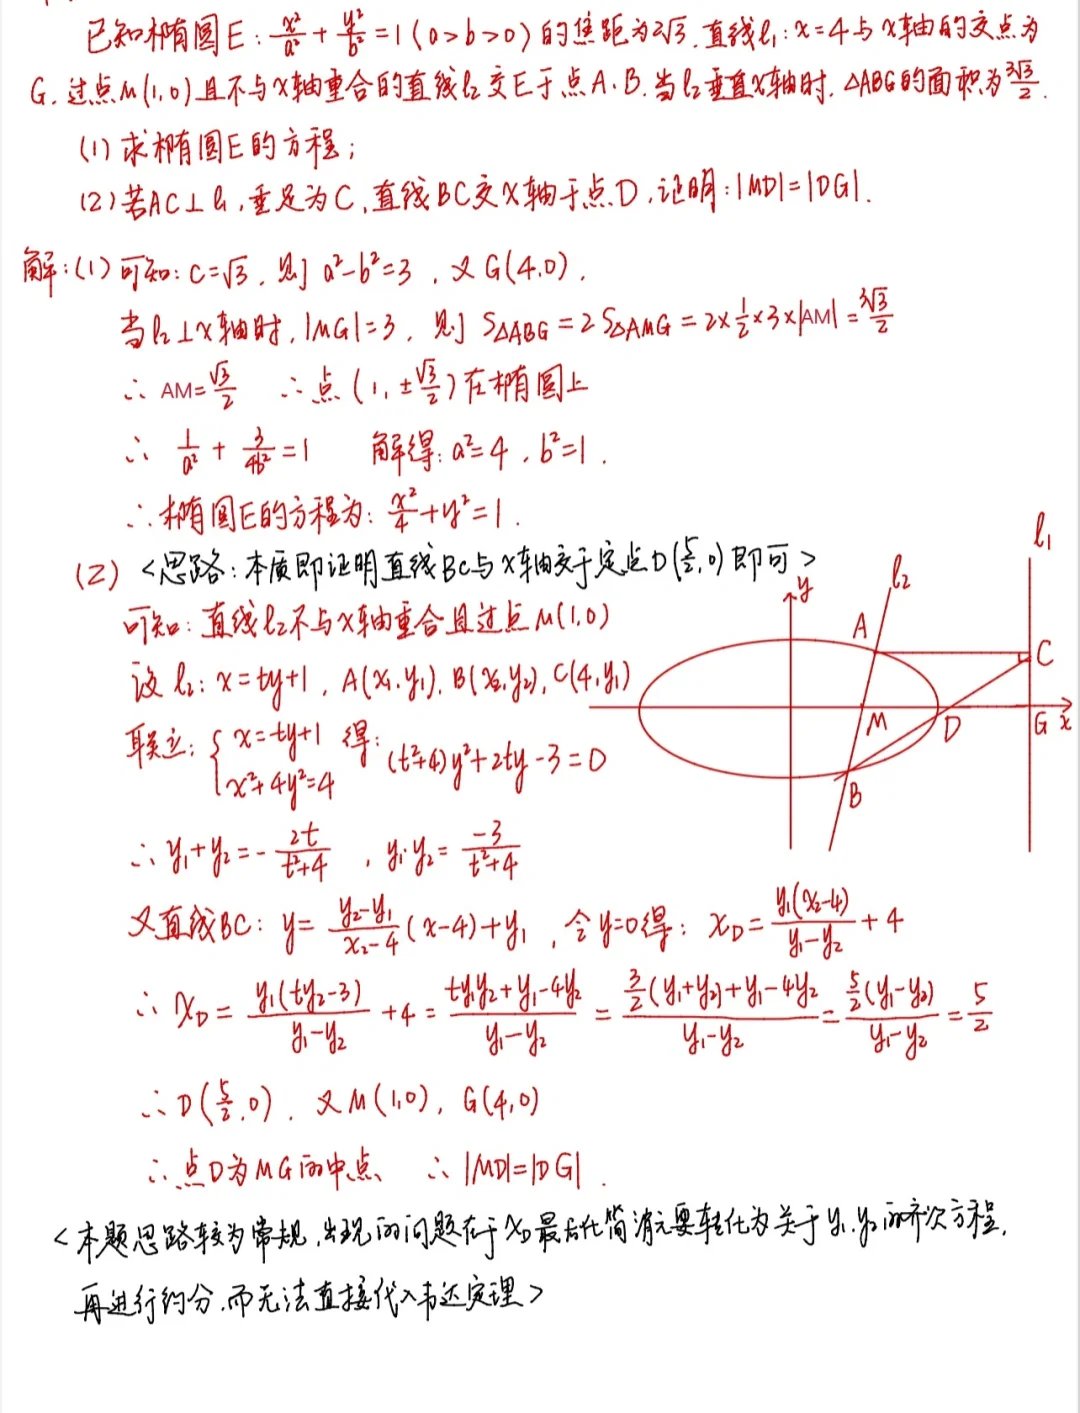 已知椭圆E: x²/a² + y²/b² = 1 (a>b>0) 的焦距为2√3. 直线l₁: x=4与x轴的交点为
G. 过点M(1,0)且不与x轴重合的直线l₂交E于点A.B. 当l₂垂直x轴时. △ABG的面积为3√3/2.
(1) 求椭圆E的方程;
(2) 若AC⊥l₁, 垂足为C, 直线BC交X轴于点D, 证明: |MD|=|DG|.
解: (1) 可知: c=√3, 则 a²-b²=3, 又G(4,0).
当l₂⊥x轴时, |MG|=3, 则 S△ABG = 2S△AMG = 2×1/2×3×|AM| = 3√3/2
∴ AM=√3/2 ∴点(1, ±√3/2)在椭圆上
∴ 1/a² + 3/4b² = 1 解得: a²=4, b²=1.
∴椭圆E的方程为: x²/4+y²=1.
(2) <思路: 本质即证明直线BC与x轴交于定点D(5/2,0)即可>
可知: 直线l₂不与x轴重合且过点M(1,0)
设l₂: x=ty+1, A(x₁,y₁), B(x₂,y₂), C(4,y₁)
联立: { x=ty+1 x²+4y²=4 得: (t²+4)y²+2ty-3=0
∴ y₁+y₂ = - 2t/t²+4, y₁·y₂ = -3/t²+4
又直线BC: y= y₂-y₁/x₂-4 (x-4)+y₁, 令y=0得: x_D = y₁(x₂-4)/y₁-y₂ + 4
∴ x_D = y₁(ty₂-3)/y₁-y₂ +4 = ty₁y₂+y₁-4y₂/y₁-y₂ = 3/2(y₁+y₂)+y₁-4y₂/y₁-y₂ = 5/2(y₁-y₂)/y₁-y₂ = 5/2
∴D(5/2,0). 又M(1,0), G(4,0)
∴点D为MG的中点 ∴|MD|=|DG|.
<本题思路较为常规, 出现的问题在于x_D最后化简消元要转化为关于y₁.y₂的齐次方程,
再进行约分, 而无法直接代入韦达定理>
l₁
l₂
y
A
C
M
D
G
x
B